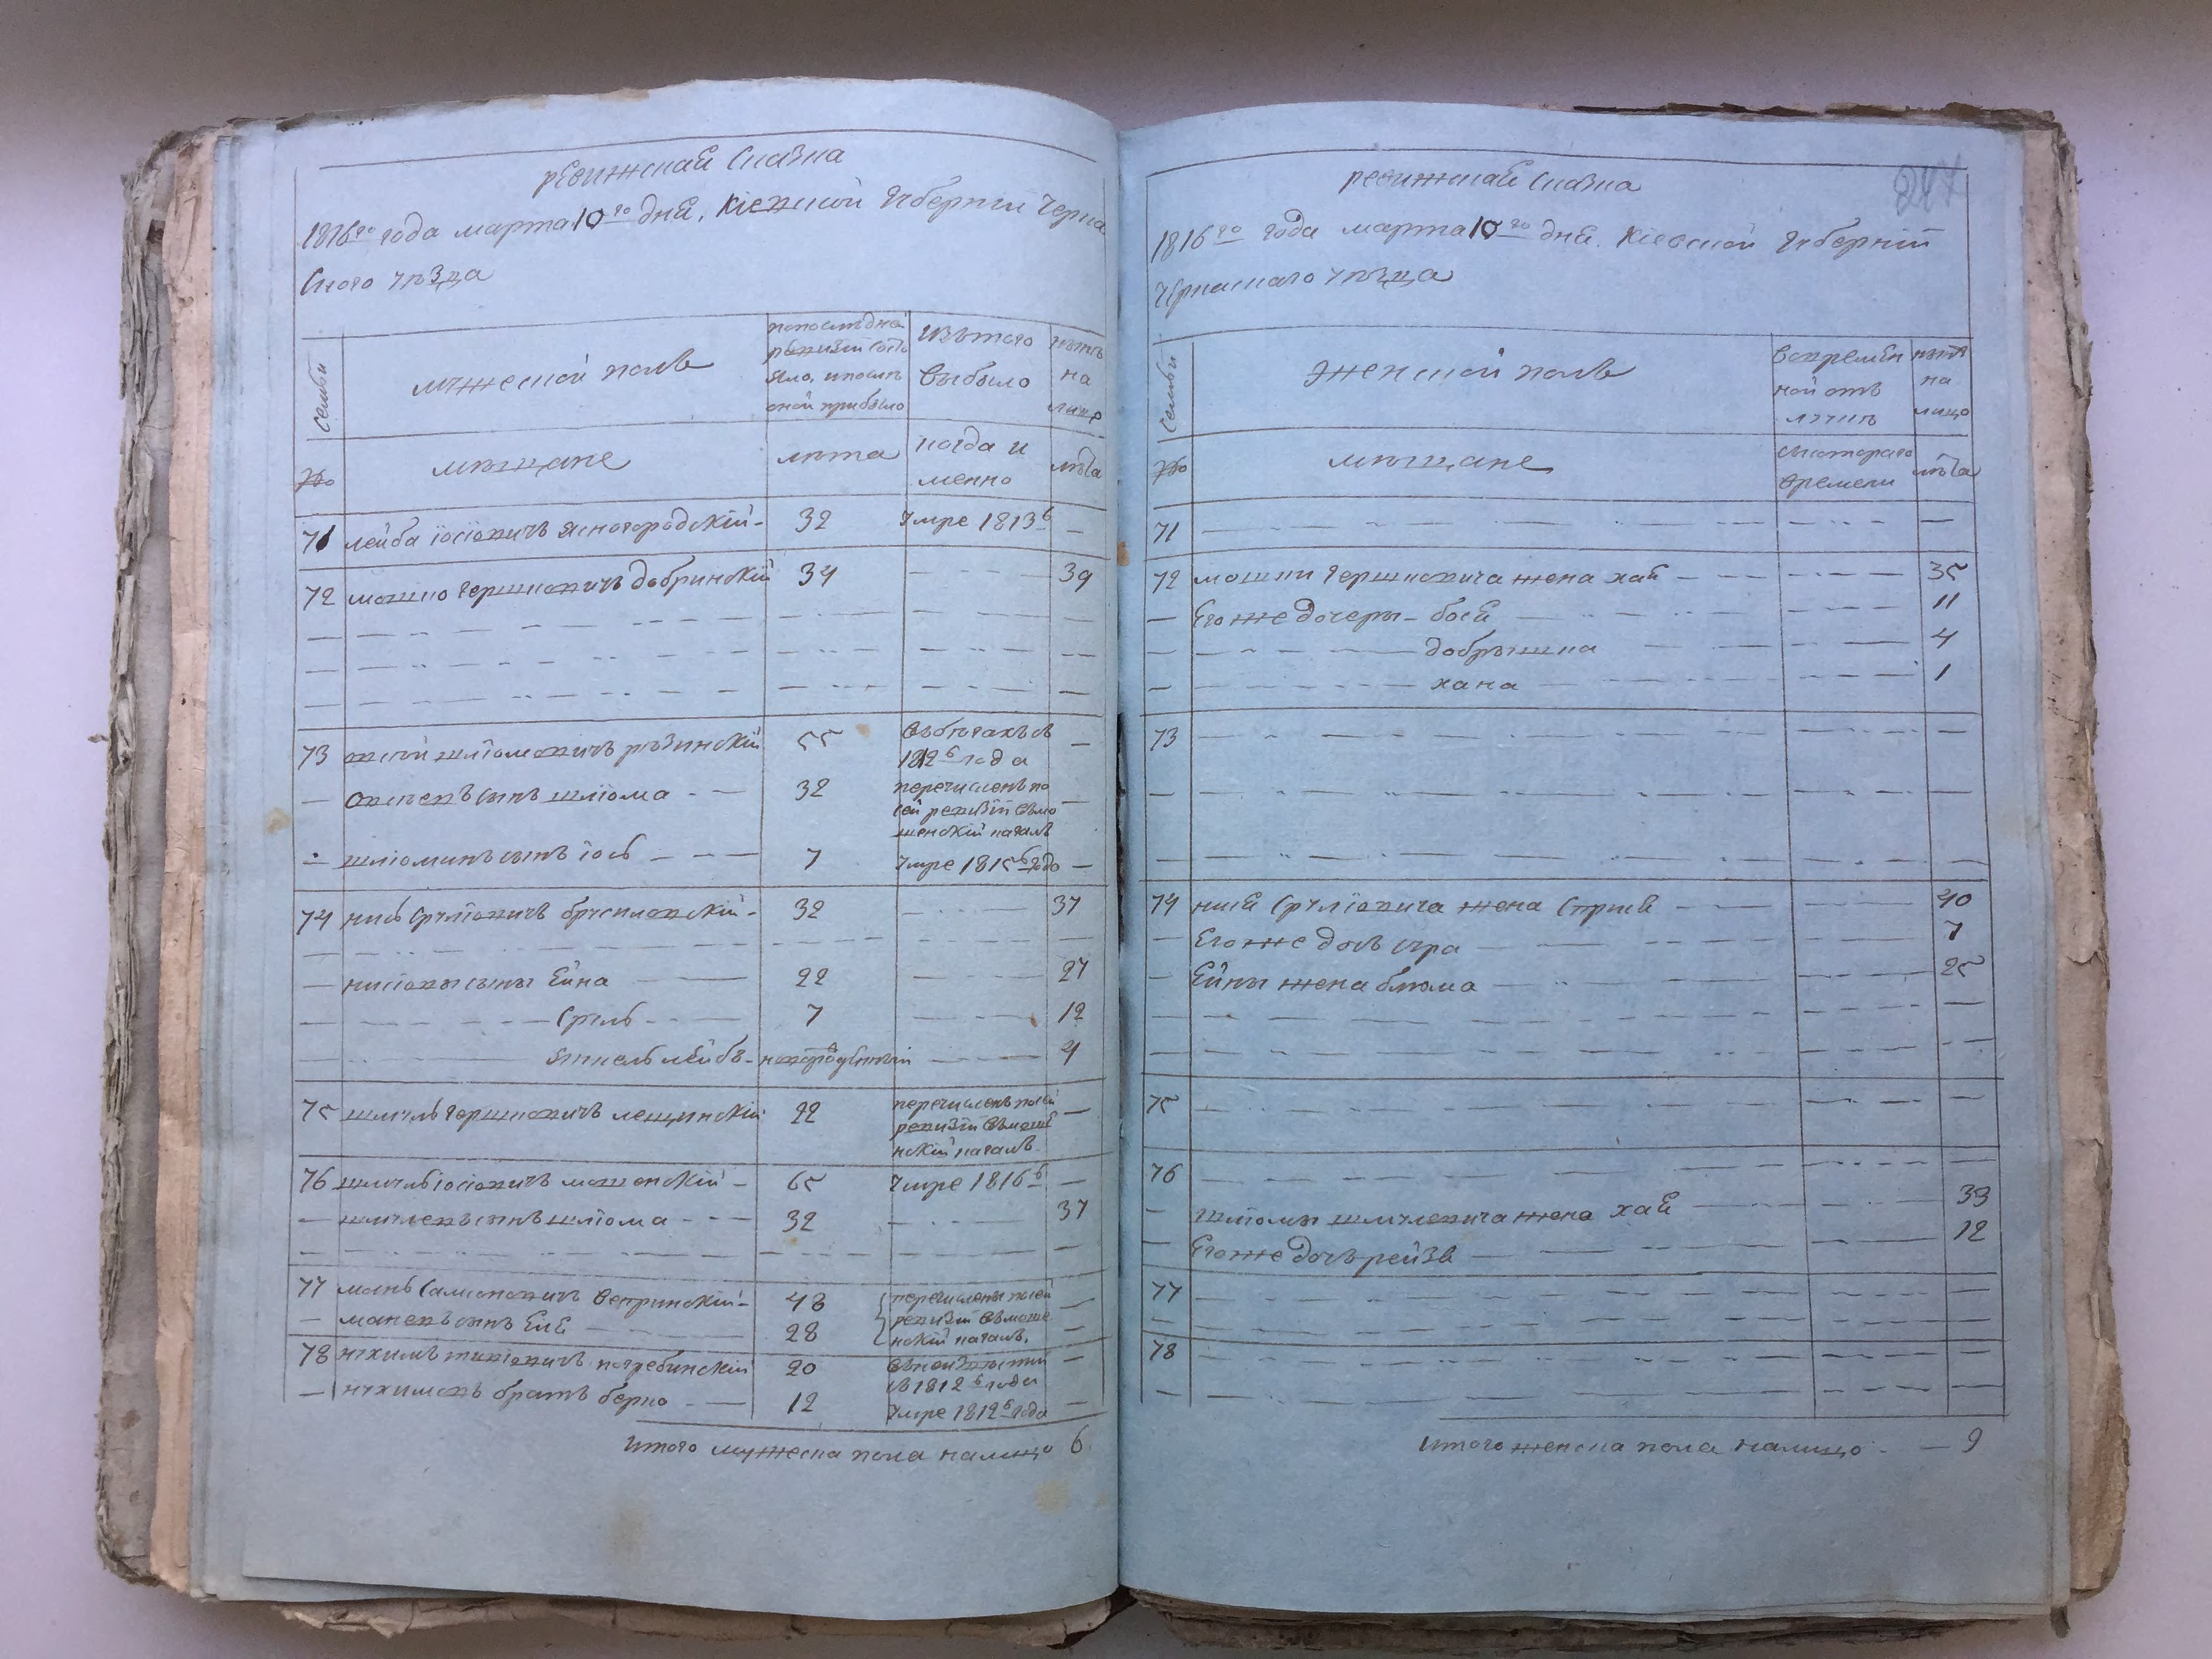 ревижская сказка
1816го года марта 10го дня, Кіевской Губерніи Черка
ского уѣзда
семьи
мужеской полъ
по последна
ревизіи состо
яло, и после
оной прибыло
Изъ того
выбыло
нынѣ
на
лицо
№
мещане
лѣта
когда и
менно
лѣта
71 лейба іосіовичъ ясногородскій - 32 Умре 1813г —
72 мошко Гершковичъ добринскій 34 39
73 шліомовичъ рѣзинскій 55 въ бѣгахъ съ
1812г года
сынъ шліома - - — 32 перечисленъ по
сей ревизіи въ мо
шенскій кагалъ
шліоминъ сынъ іось - - — 7 Умре 1815г годо —
74 нись Сруліовичъ бруспловскій - 32 37
нисіовы сыны Ейна 22 27
Срель 7 12
янкель лейбъ - новорожденный 4
75 шмуль Гершковичъ лещинскій 22 перечисленъ по сей
ревизіи въ моше
нскій кагалъ
76 шмуль іосіовичъ мошенскій - 65 Умре 1816г —
шмулевъ сынъ шліома - - — 32 37
77 мань Самсоновичъ вепринскій - 48 перечислены по сей
маневъ сынъ Еля 28 ревизіи въ моше
нскій кагалъ.
78 нухимъ погребинскій 20
съ 1812г года
нухимовъ братъ берко - — 12 Умре 1812г года
Итого мужеска пола налицо 6
ревижская сказка
247
1816го года марта 10го дня. Кіевской Губерніи
Черкаскаго уѣзда
Семьи
женской полъ
во времен
ной отъ
лучкѣ
нынѣ
на
лицо
№
мещане
съ котораго
времени
лѣта
71
72 мошки Гершковича жена хая 35
Его же дочеры - бося 11
добрышка 4
хана 1
73
74 нися Сруліовича жена Стрися 40
Его же дочь сура 7
Ейны жена блюма 25
75
76
шліомы шмулевича жена хая 33
Его же дочь рейзя 12
77
78
Итого женска пола налицо - — 9